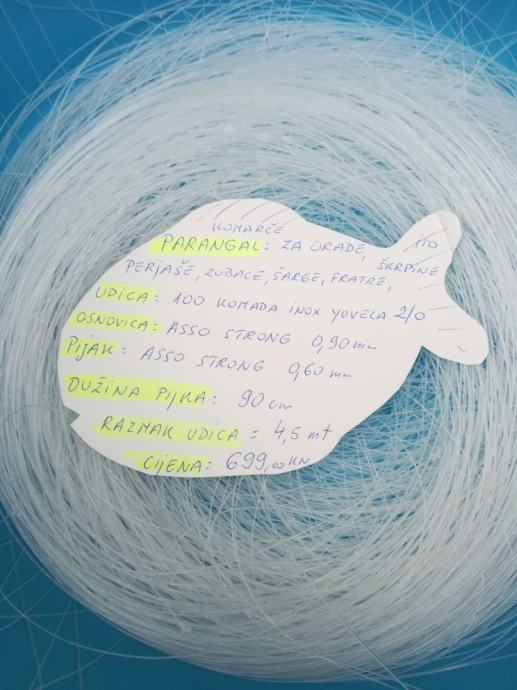 KOMARČE
PARANGAL: ZA ORADE, ITO
PERJAŠE, ZUBACE, ŠARGE, FRATRE, ŠKRPINE
UDICA: 100 KOMADA INOX YUVELA 2/0
OSNOVICA: ASSO STRONG 0,90 mm
PIJAK: ASSO STRONG 0,60 mm
DUŽINA PIJKA: 90 cm
RAZMAK UDICA = 4,5 mt
CIJENA: 699,00 KN